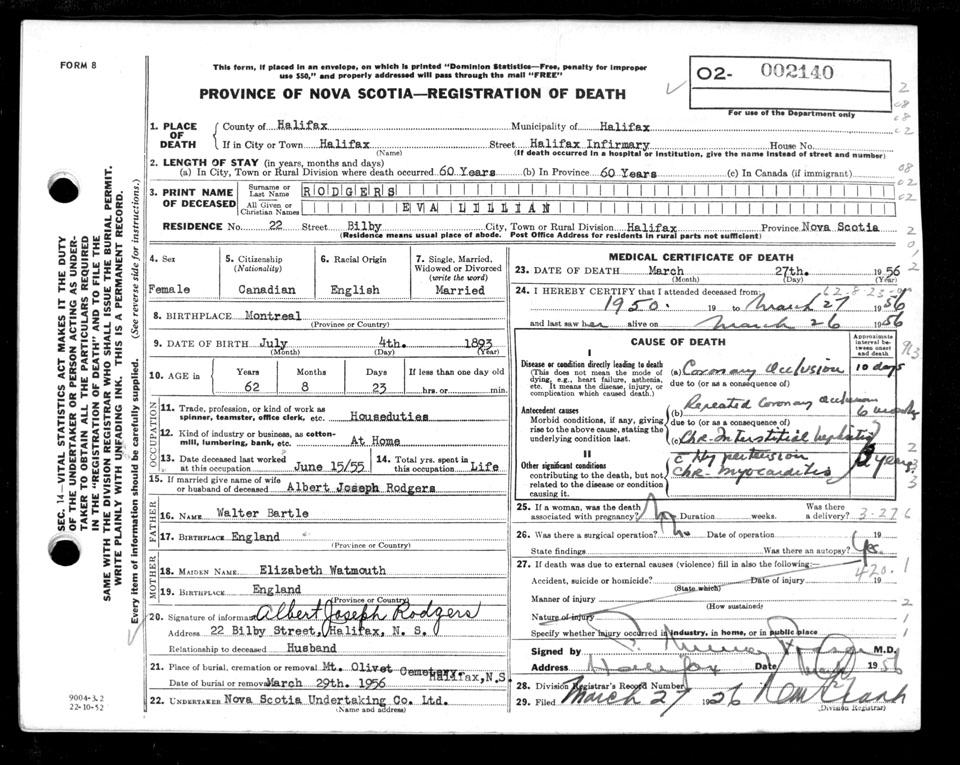 FORM 8
This form, if placed in an envelope, on which is printed "Dominion Statistics—Free, penalty for improper
use $50," and properly addressed will pass through the mail "FREE"
PROVINCE OF NOVA SCOTIA—REGISTRATION OF DEATH
02- 002140
For use of the Department only
1. PLACE OF DEATH
County of Halifax Municipality of Halifax
If in City or Town Halifax Street Halifax Infirmary House No.
(Name) (If death occurred in a hospital or institution, give the name instead of street and number)
2. LENGTH OF STAY (in years, months and days)
(a) In City, Town or Rural Division where death occurred 60 Years (b) In Province 60 Years (c) In Canada (if immigrant)
3. PRINT NAME OF DECEASED
Surname or Last Name RODGERS
All Given or Christian Names EVA LILLIAN
RESIDENCE No. 22 Street Bilby City, Town or Rural Division Halifax Province Nova Scotia
(Residence means usual place of abode. Post Office Address for residents in rural parts not sufficient)
SEC. 14—VITAL STATISTICS ACT MAKES IT THE DUTY
OF THE UNDERTAKER OR PERSON ACTING AS UNDER-
TAKER TO OBTAIN ALL THE PARTICULARS REQUIRED
IN THE "REGISTRATION OF DEATH" AND TO FILE THE
SAME WITH THE DIVISION REGISTRAR WHO SHALL ISSUE THE BURIAL PERMIT.
WRITE PLAINLY WITH UNFADING INK. THIS IS A PERMANENT RECORD.
Every item of information should be carefully supplied. (See reverse side for instructions.)
4. Sex
Female
5. Citizenship (Nationality)
Canadian
6. Racial Origin
English
7. Single, Married, Widowed or Divorced (write the word)
Married
8. BIRTHPLACE Montreal
(Province or Country)
9. DATE OF BIRTH July 4th. 1893
(Month) (Day) (Year)
10. AGE in Years Months Days If less than one day old
62 8 23 hrs. or min.
OCCUPATION
11. Trade, profession, or kind of work as
spinner, teamster, office clerk, etc. Houseduties
12. Kind of industry or business, as cotton-
mill, lumbering, bank, etc. At Home
13. Date deceased last worked
at this occupation June 15/55
14. Total yrs. spent in
this occupation Life
15. If married give name of wife
or husband of deceased Albert Joseph Rodgers
FATHER
16. NAME Walter Bartle
17. BIRTHPLACE England
(Province or Country)
MOTHER
18. MAIDEN NAME Elizabeth Watmouth
19. BIRTHPLACE England
(Province or Country)
20. Signature of informant Albert Joseph Rodgers
Address 22 Bilby Street, Halifax, N. S.
Relationship to deceased Husband
21. Place of burial, cremation or removal Mt. Olivet Cemetery, Halifax, N.S.
Date of burial or removal March 29th. 1956
22. UNDERTAKER Nova Scotia Undertaking Co. Ltd.
(Name and address)
9004-3.2
22-10-52
MEDICAL CERTIFICATE OF DEATH
23. DATE OF DEATH March 27th. 1956
(Month) (Day) (Year)
24. I HEREBY CERTIFY that I attended deceased from:
1950 19 to March 27 1956
and last saw her alive on March 26 1956
CAUSE OF DEATH
Approximate interval between onset and death
I
Disease or condition directly leading to death
(This does not mean the mode of
dying, e.g., heart failure, asthenia,
etc. It means the disease, injury, or
complication which caused death.)
(a) Coronary occlusion 10 days
due to (or as a consequence of)
Antecedent causes
Morbid conditions, if any, giving
rise to the above cause, stating the
underlying condition last.
(b) Repeated Coronary occlusion 6 months
due to (or as a consequence of)
(c) Chr. Interstitial Nephritis
II
Other significant conditions
contributing to the death, but not
related to the disease or condition
causing it.
c Hypertension
Chr. Myocarditis years
25. If a woman, was the death
associated with pregnancy? No Duration weeks. Was there
a delivery? 3-276
26. Was there a surgical operation? No Date of operation 19
State findings Was there an autopsy? Yes.
27. If death was due to external causes (violence) fill in also the following:
420.1
Accident, suicide or homicide? Date of injury 19
(State which)
Manner of injury
(How sustained)
Nature of injury
Specify whether injury occurred in industry, in home, or in public place
Signed by M.D.
Address Halifax Date 1956
28. Division Registrar's Record Number
29. Filed March 27 1956
(Division Registrar)